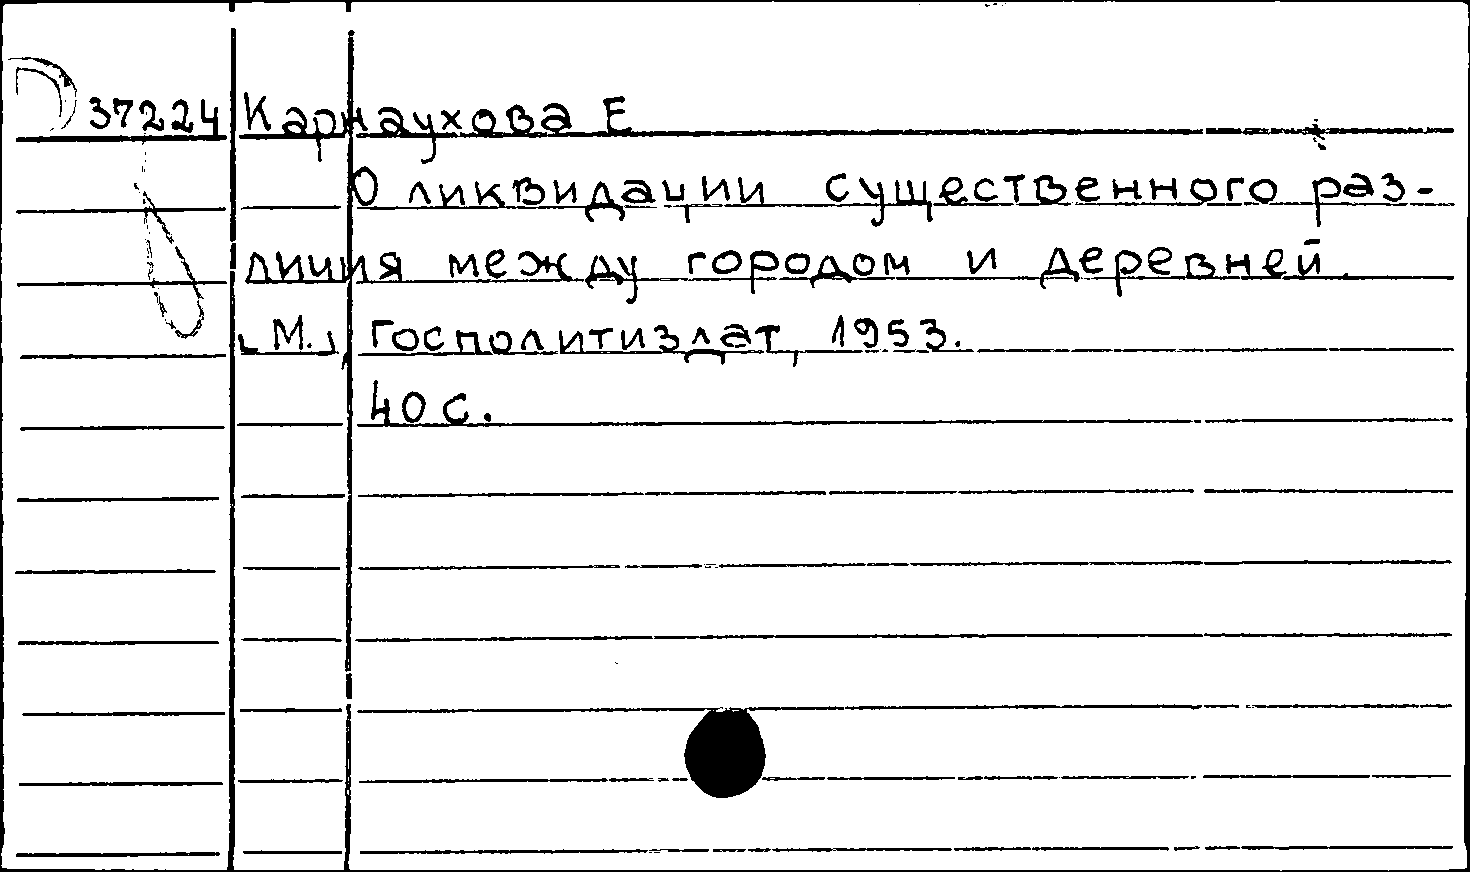 37224 Карнаухова Е
О ликвидации существенного раз-
личия между городом и деревней.
[М.], Госполитиздат, 1953.
40 с.